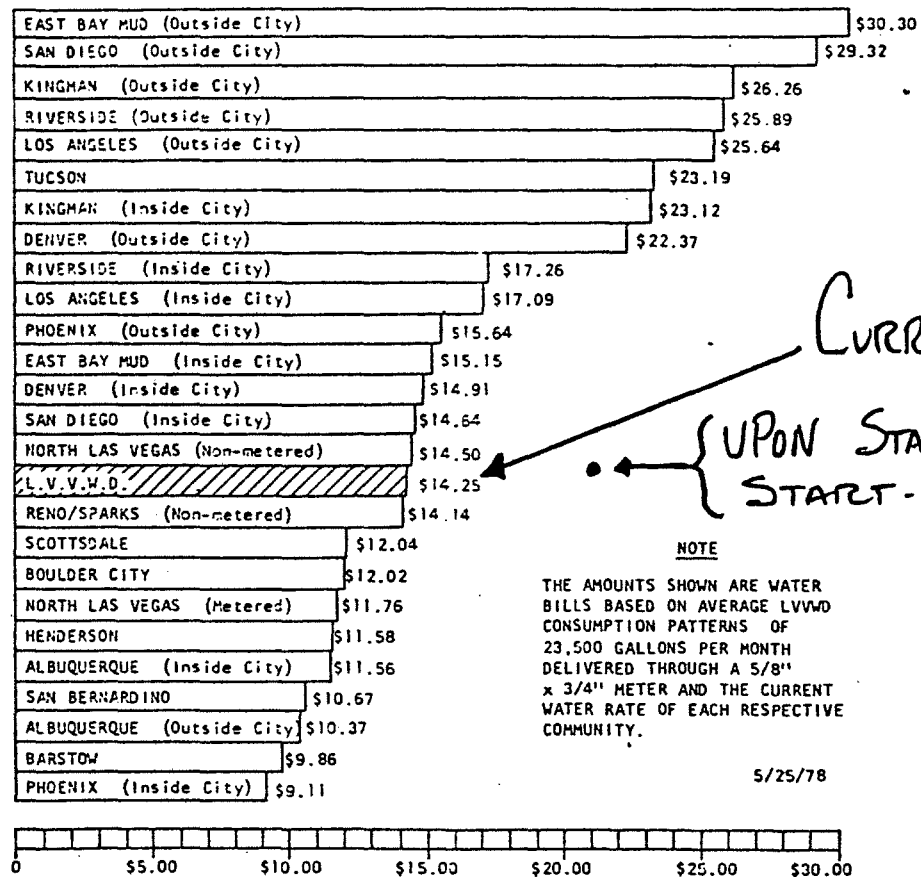 EAST BAY MUD (Outside City) $30.30
SAN DIEGO (Outside City) $29.32
KINGMAN (Outside City) $26.26
RIVERSIDE (Outside City) $25.89
LOS ANGELES (Outside City) $25.64
TUCSON $23.19
KINGMAN (Inside City) $23.12
DENVER (Outside City) $22.37
RIVERSIDE (Inside City) $17.26
LOS ANGELES (Inside City) $17.09
PHOENIX (Outside City) $15.64
CURR
EAST BAY MUD (Inside City) $15.15
DENVER (Inside City) $14.91
SAN DIEGO (Inside City) $14.64
NORTH LAS VEGAS (Non-metered) $14.50
UPON STA
L.V.V.W.D. $14.25
START-
RENO/SPARKS (Non-metered) $14.14
SCOTTSDALE $12.04
BOULDER CITY $12.02
NORTH LAS VEGAS (Metered) $11.76
HENDERSON $11.58
ALBUQUERQUE (Inside City) $11.56
SAN BERNARDINO $10.67
ALBUQUERQUE (Outside City) $10.37
BARSTOW $9.86
PHOENIX (Inside City) $9.11
NOTE
THE AMOUNTS SHOWN ARE WATER
BILLS BASED ON AVERAGE LVVWD
CONSUMPTION PATTERNS OF
23,500 GALLONS PER MONTH
DELIVERED THROUGH A 5/8"
x 3/4" METER AND THE CURRENT
WATER RATE OF EACH RESPECTIVE
COMMUNITY.
5/25/78
0 $5.00 $10.00 $15.00 $20.00 $25.00 $30.00